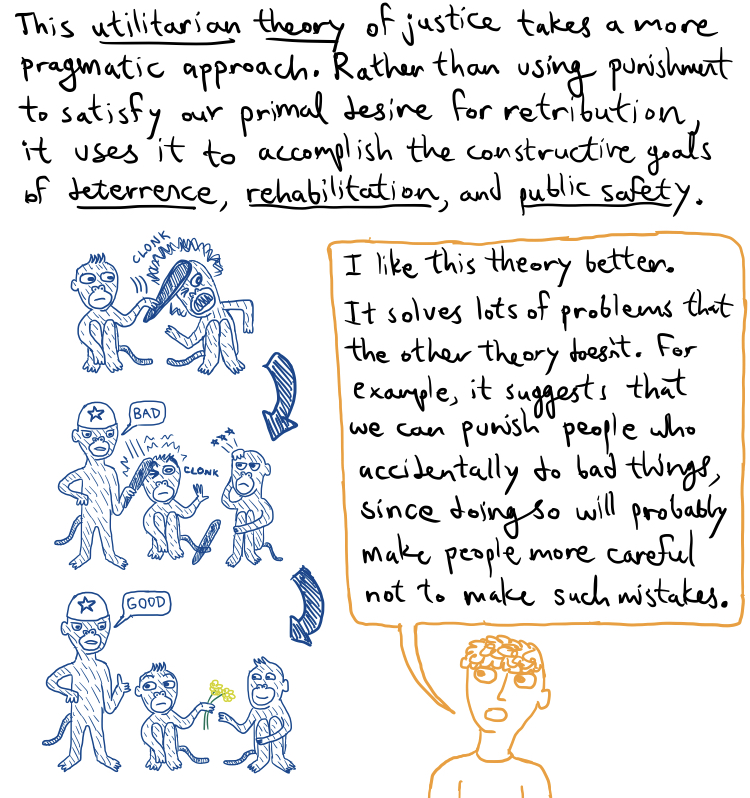 This utilitarian theory of justice takes a more
pragmatic approach. Rather than using punishment
to satisfy our primal desire for retribution,
it uses it to accomplish the constructive goals
of deterrence, rehabilitation, and public safety.
CLONK
BAD
CLONK
GOOD
I like this theory better.
It solves lots of problems that
the other theory doesn't. For
example, it suggests that
we can punish people who
accidentally do bad things,
since doing so will probably
make people more careful
not to make such mistakes.